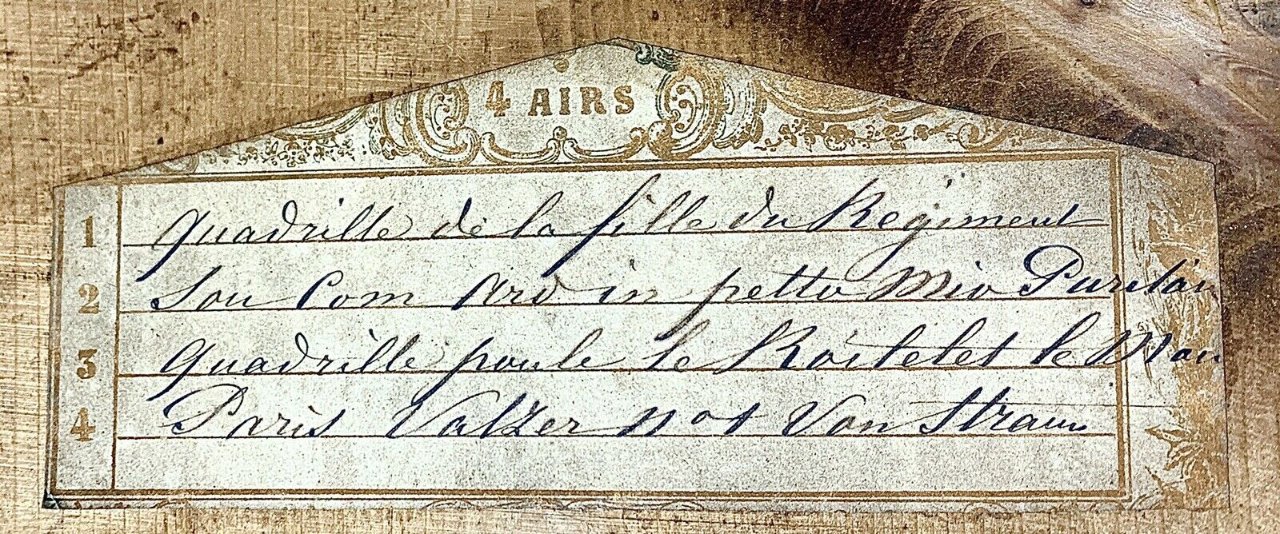 4 AIRS
1 Quadrille de la fille du Régiment
2 Sou Com Ard in petto Mio Puritai
3 Quadrille poule le Roitelet le
4 Paris Valzer No 1 Von Straus